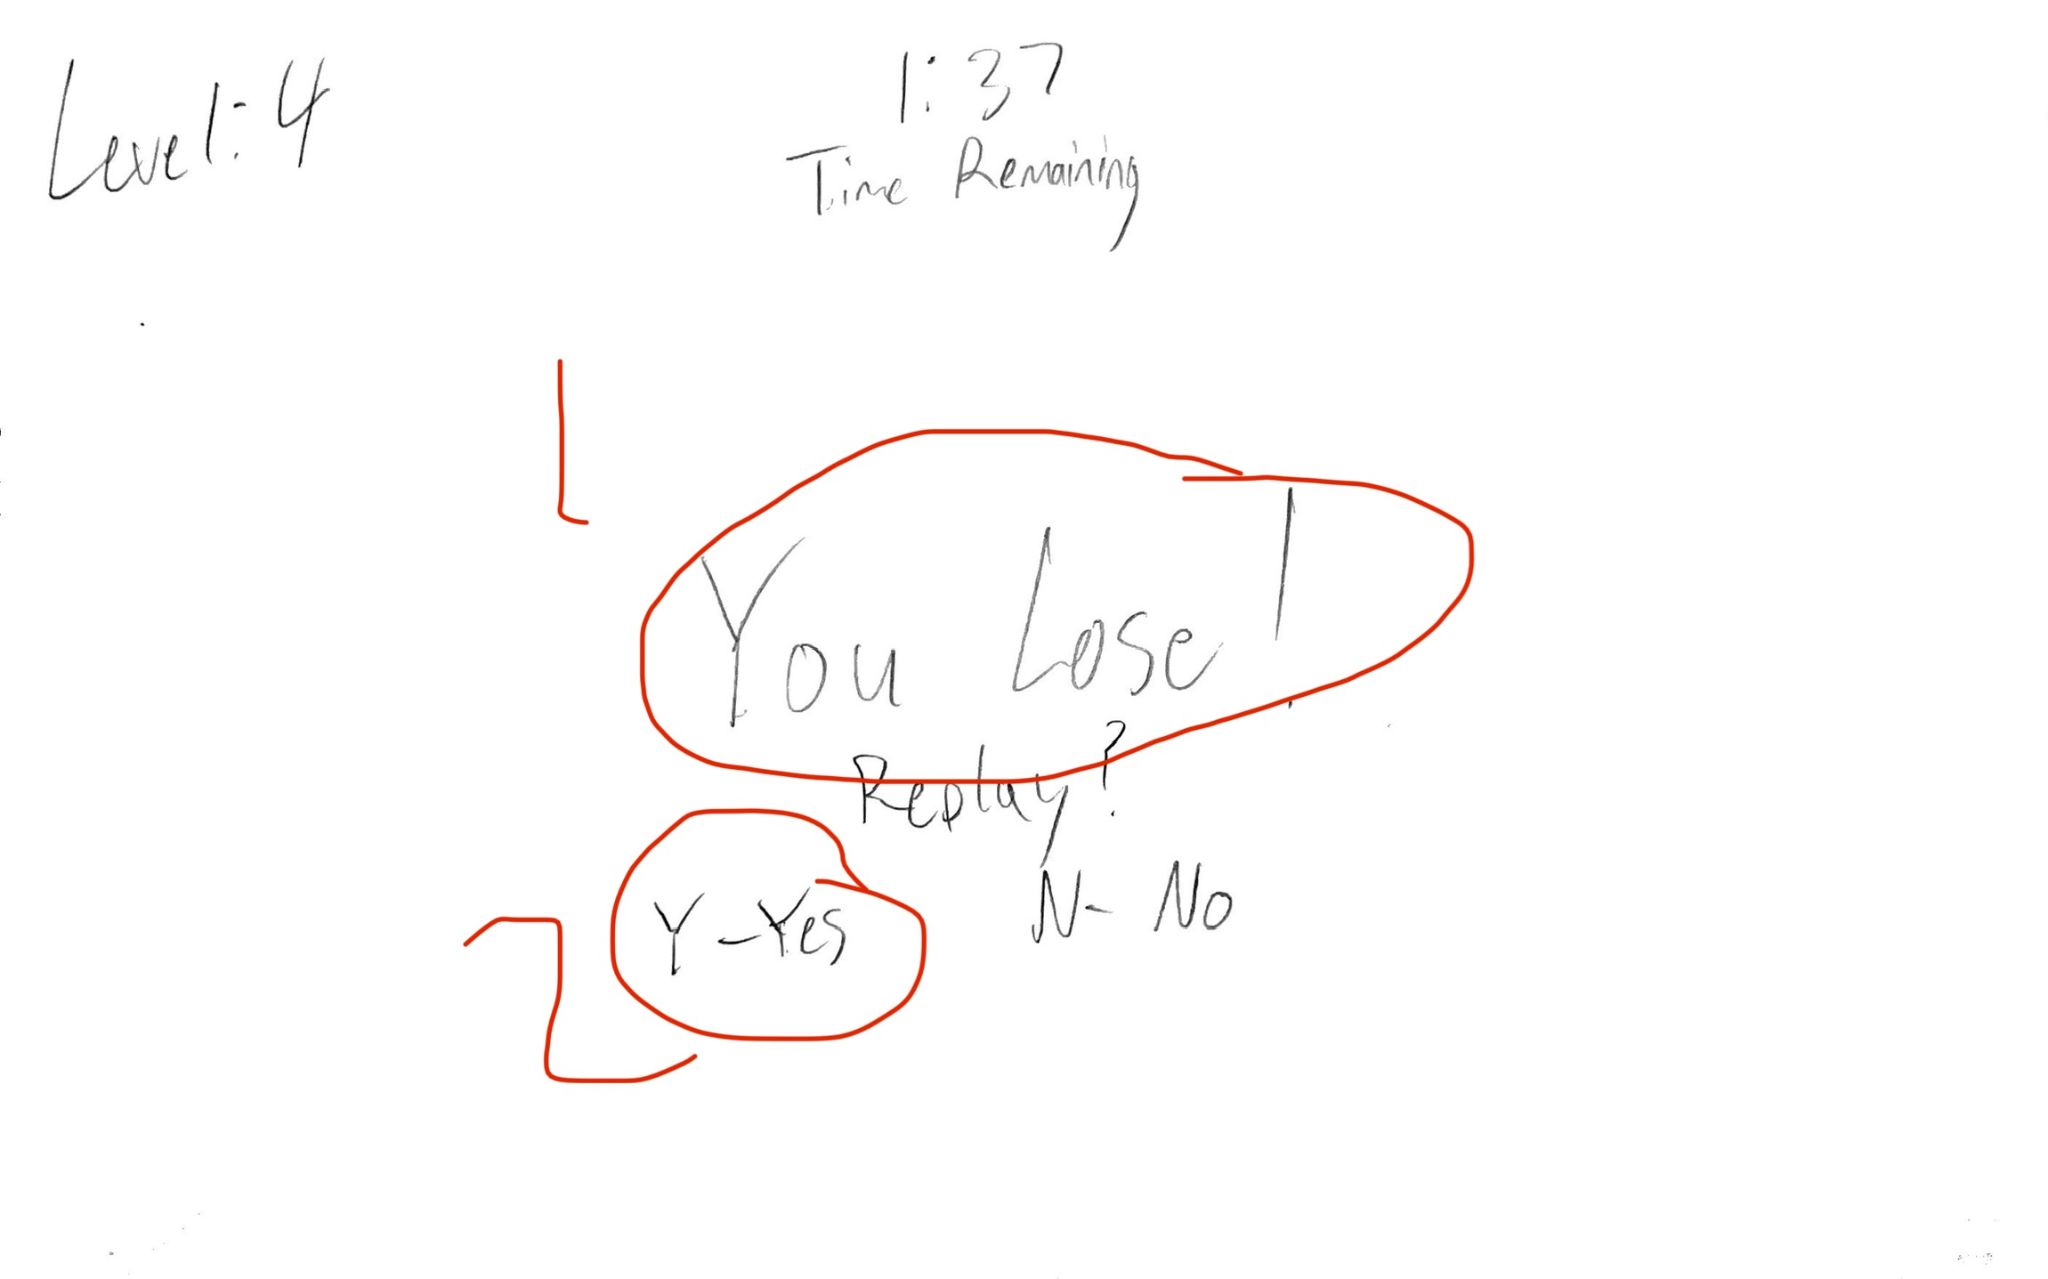 Level: 4
1:37
Time Remaining
1
You Lose!
Replay?
Y - Yes
N - No
2